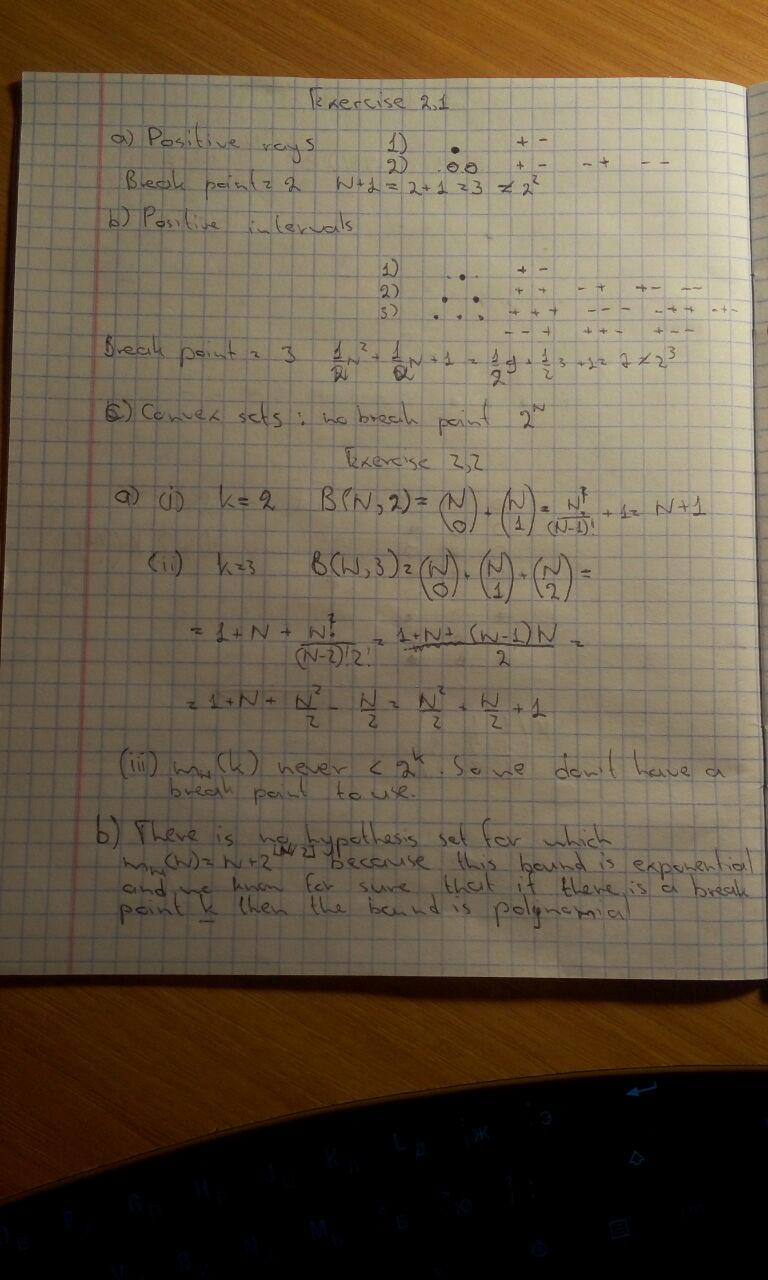 Exercise 2.1
a) Positive rays 1) + -
2) + - - + - -
Break point = 2 N+1 = 2+1 = 3 < 2²
b) Positive intervals
1) + -
2) + + - + + - - -
3) + + + - - - - + + - + -
- - + + + - + - -
Break point = 3 1/2 N² + 1/2 N + 1 = 1/2 9 + 1/2 3 + 1 = 7 < 2³
c) Convex sets : no break point 2^N
Exercise 2.2
a) (i) k = 2 B(N, 2) = (N 0) + (N 1) = N!/(N-1)! + 1 = N+1
(ii) k=3 B(N, 3) = (N 0) + (N 1) + (N 2) =
= 1 + N + N!/(N-2)!2! = 1+N+ (N-1)N/2 =
= 1 + N + N²/2 - N/2 = N²/2 + N/2 + 1
(iii) m_H(k) never < 2^k. Some don't have a
break point to use.
b) There is no hypothesis set for which
m_H(N) = N + 2^[N/2] because this bound is exponential
and we know for sure that if there is a break
point k then the bound is polynomial